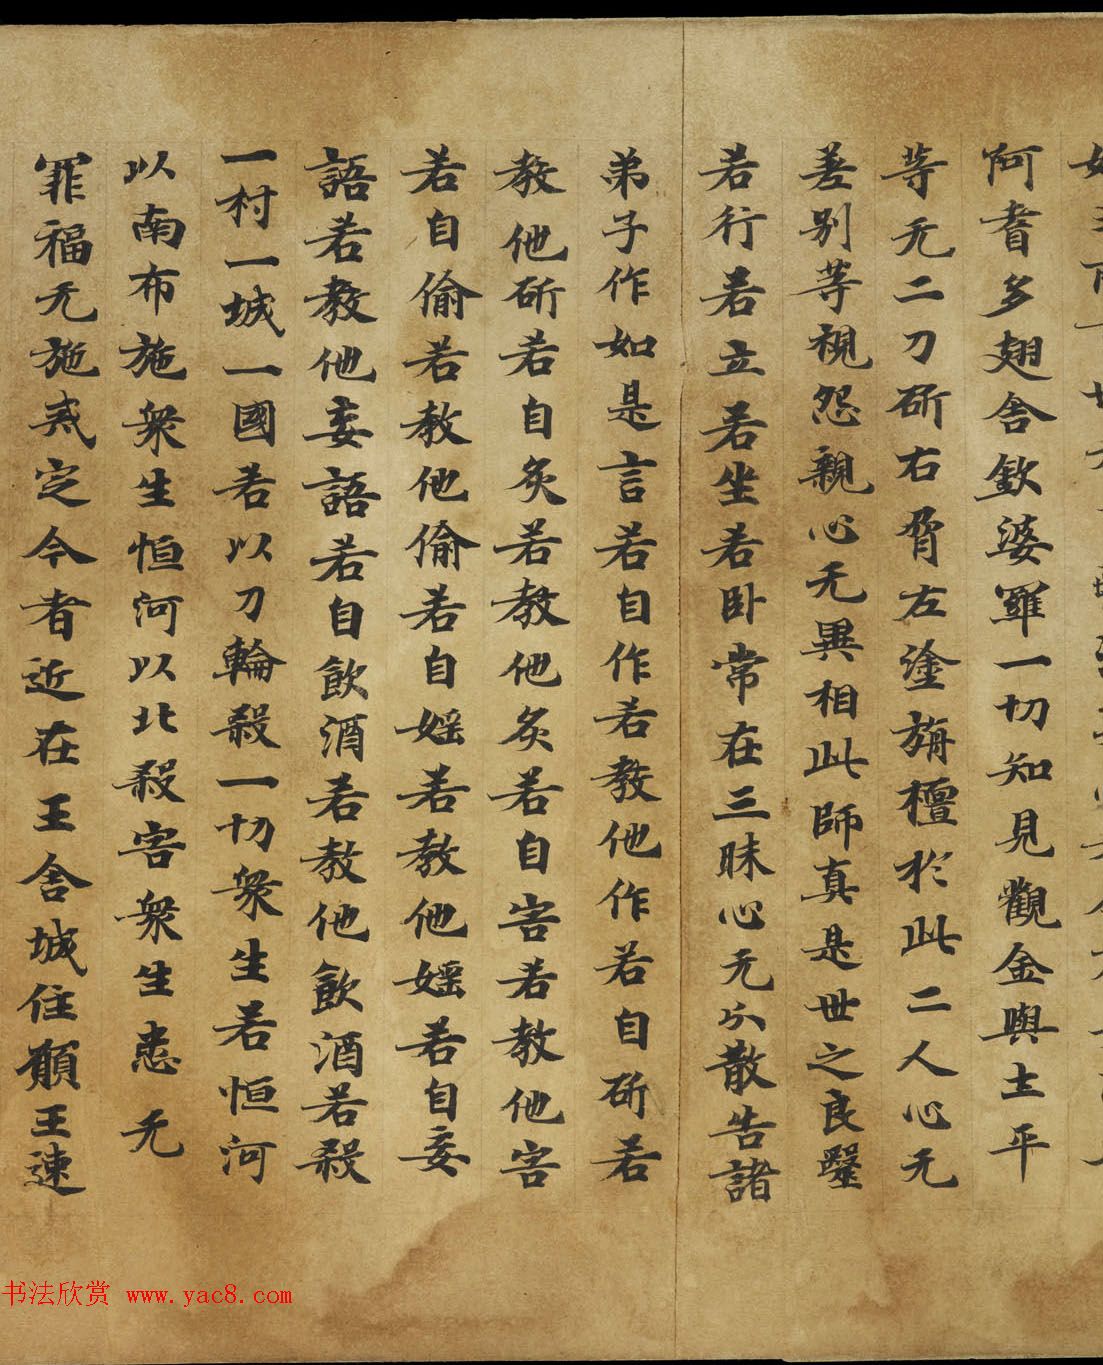 阿耆多翅舍欽婆羅一切知見觀金與土平
等无二刀斫右脅左塗旃檀於此二人心无
差別等視怨親心无異相此師真是世之良毉
若行若立若坐若卧常在三昧心无分散告諸
弟子作如是言若自作若教他作若自斫若
教他斫若自炙若教他炙若自害若教他害
若自偷若教他偷若自婬若教他婬若自妄
語若教他妄語若自飲酒若教他飲酒若殺
一村一城一國若以刀輪殺一切衆生若恒河
以南布施衆生恒河以北殺害衆生悉无
罪福无施戒定今者近在王舍城住願王速
书法欣赏 www.yac8.com